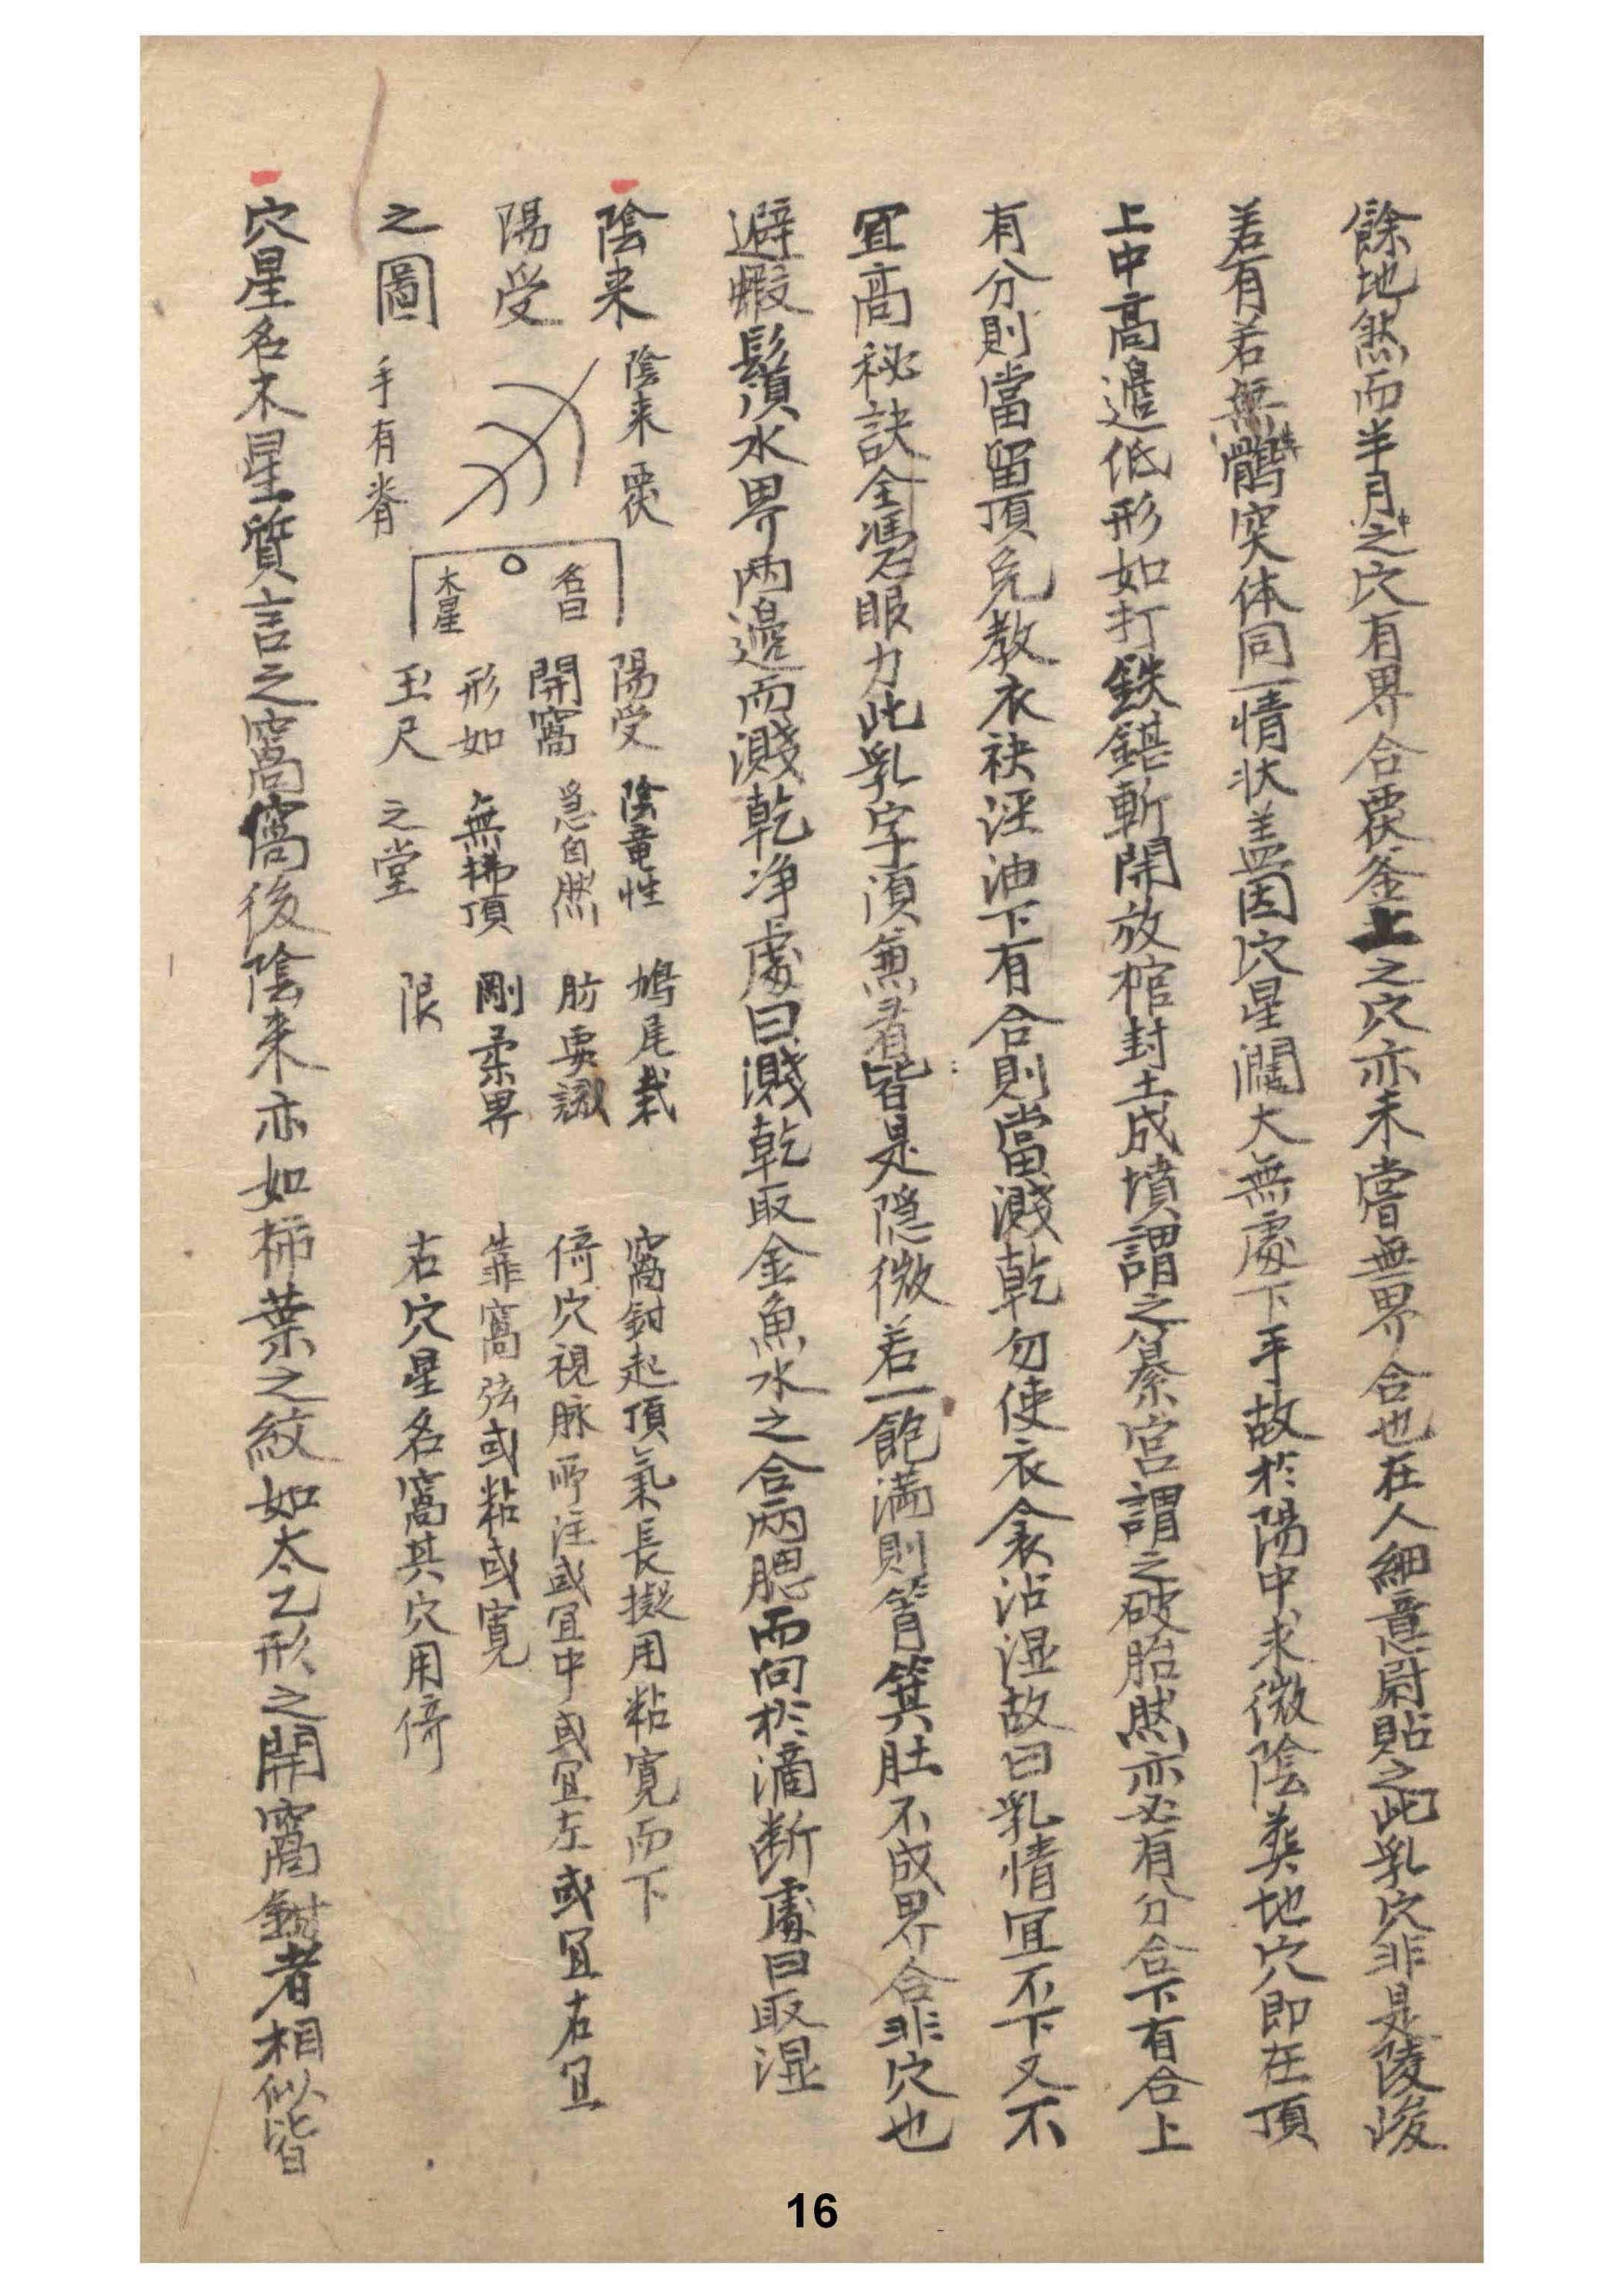 餘地然而半月之穴有界合覆釜上之穴亦未嘗無界合也在人細意尉貼之此乳穴非是陵峻
若有若無鶻突体同一情状盖因穴星濶大無處下手故於陽中求微陰葬地穴即在頂
上中高邉低形如打鉄鍖斬開放棺封土成墳謂之綦宫謂之破胎然亦必有分合下有合上
有分則當留頂免教衣袂泾油下有合則當濺乾勿使衣衾沾湿故曰乳情宜不下又不
宜髙秘訣全馮眼力此乳字湏兼看皆是隠微若一飽満則筲箕肚不成界合非穴也
避蝦鬚水界两邉而濺乾净處曰濺乾取金魚水之合兩腮而向於滴断處曰取湿
陰来
陽受
之圖
陰来覆
手有脊
名曰
木星
陽受
開窩
形如
玉尺
陰竜性
急自然
無拂頂
之堂
鳩尾裁
肪要識
剛柔界
限
窩鉗起頂氣長擬用粘寛而下
倚穴視脉所注或宜中或宜左或宜右宜
靠窩弦或粘或寛
右穴星名窩其穴用倚
穴星名木星質言之窩窩後陰来亦如柹葉之紋如太乙形之開窩鉗者相似皆
16